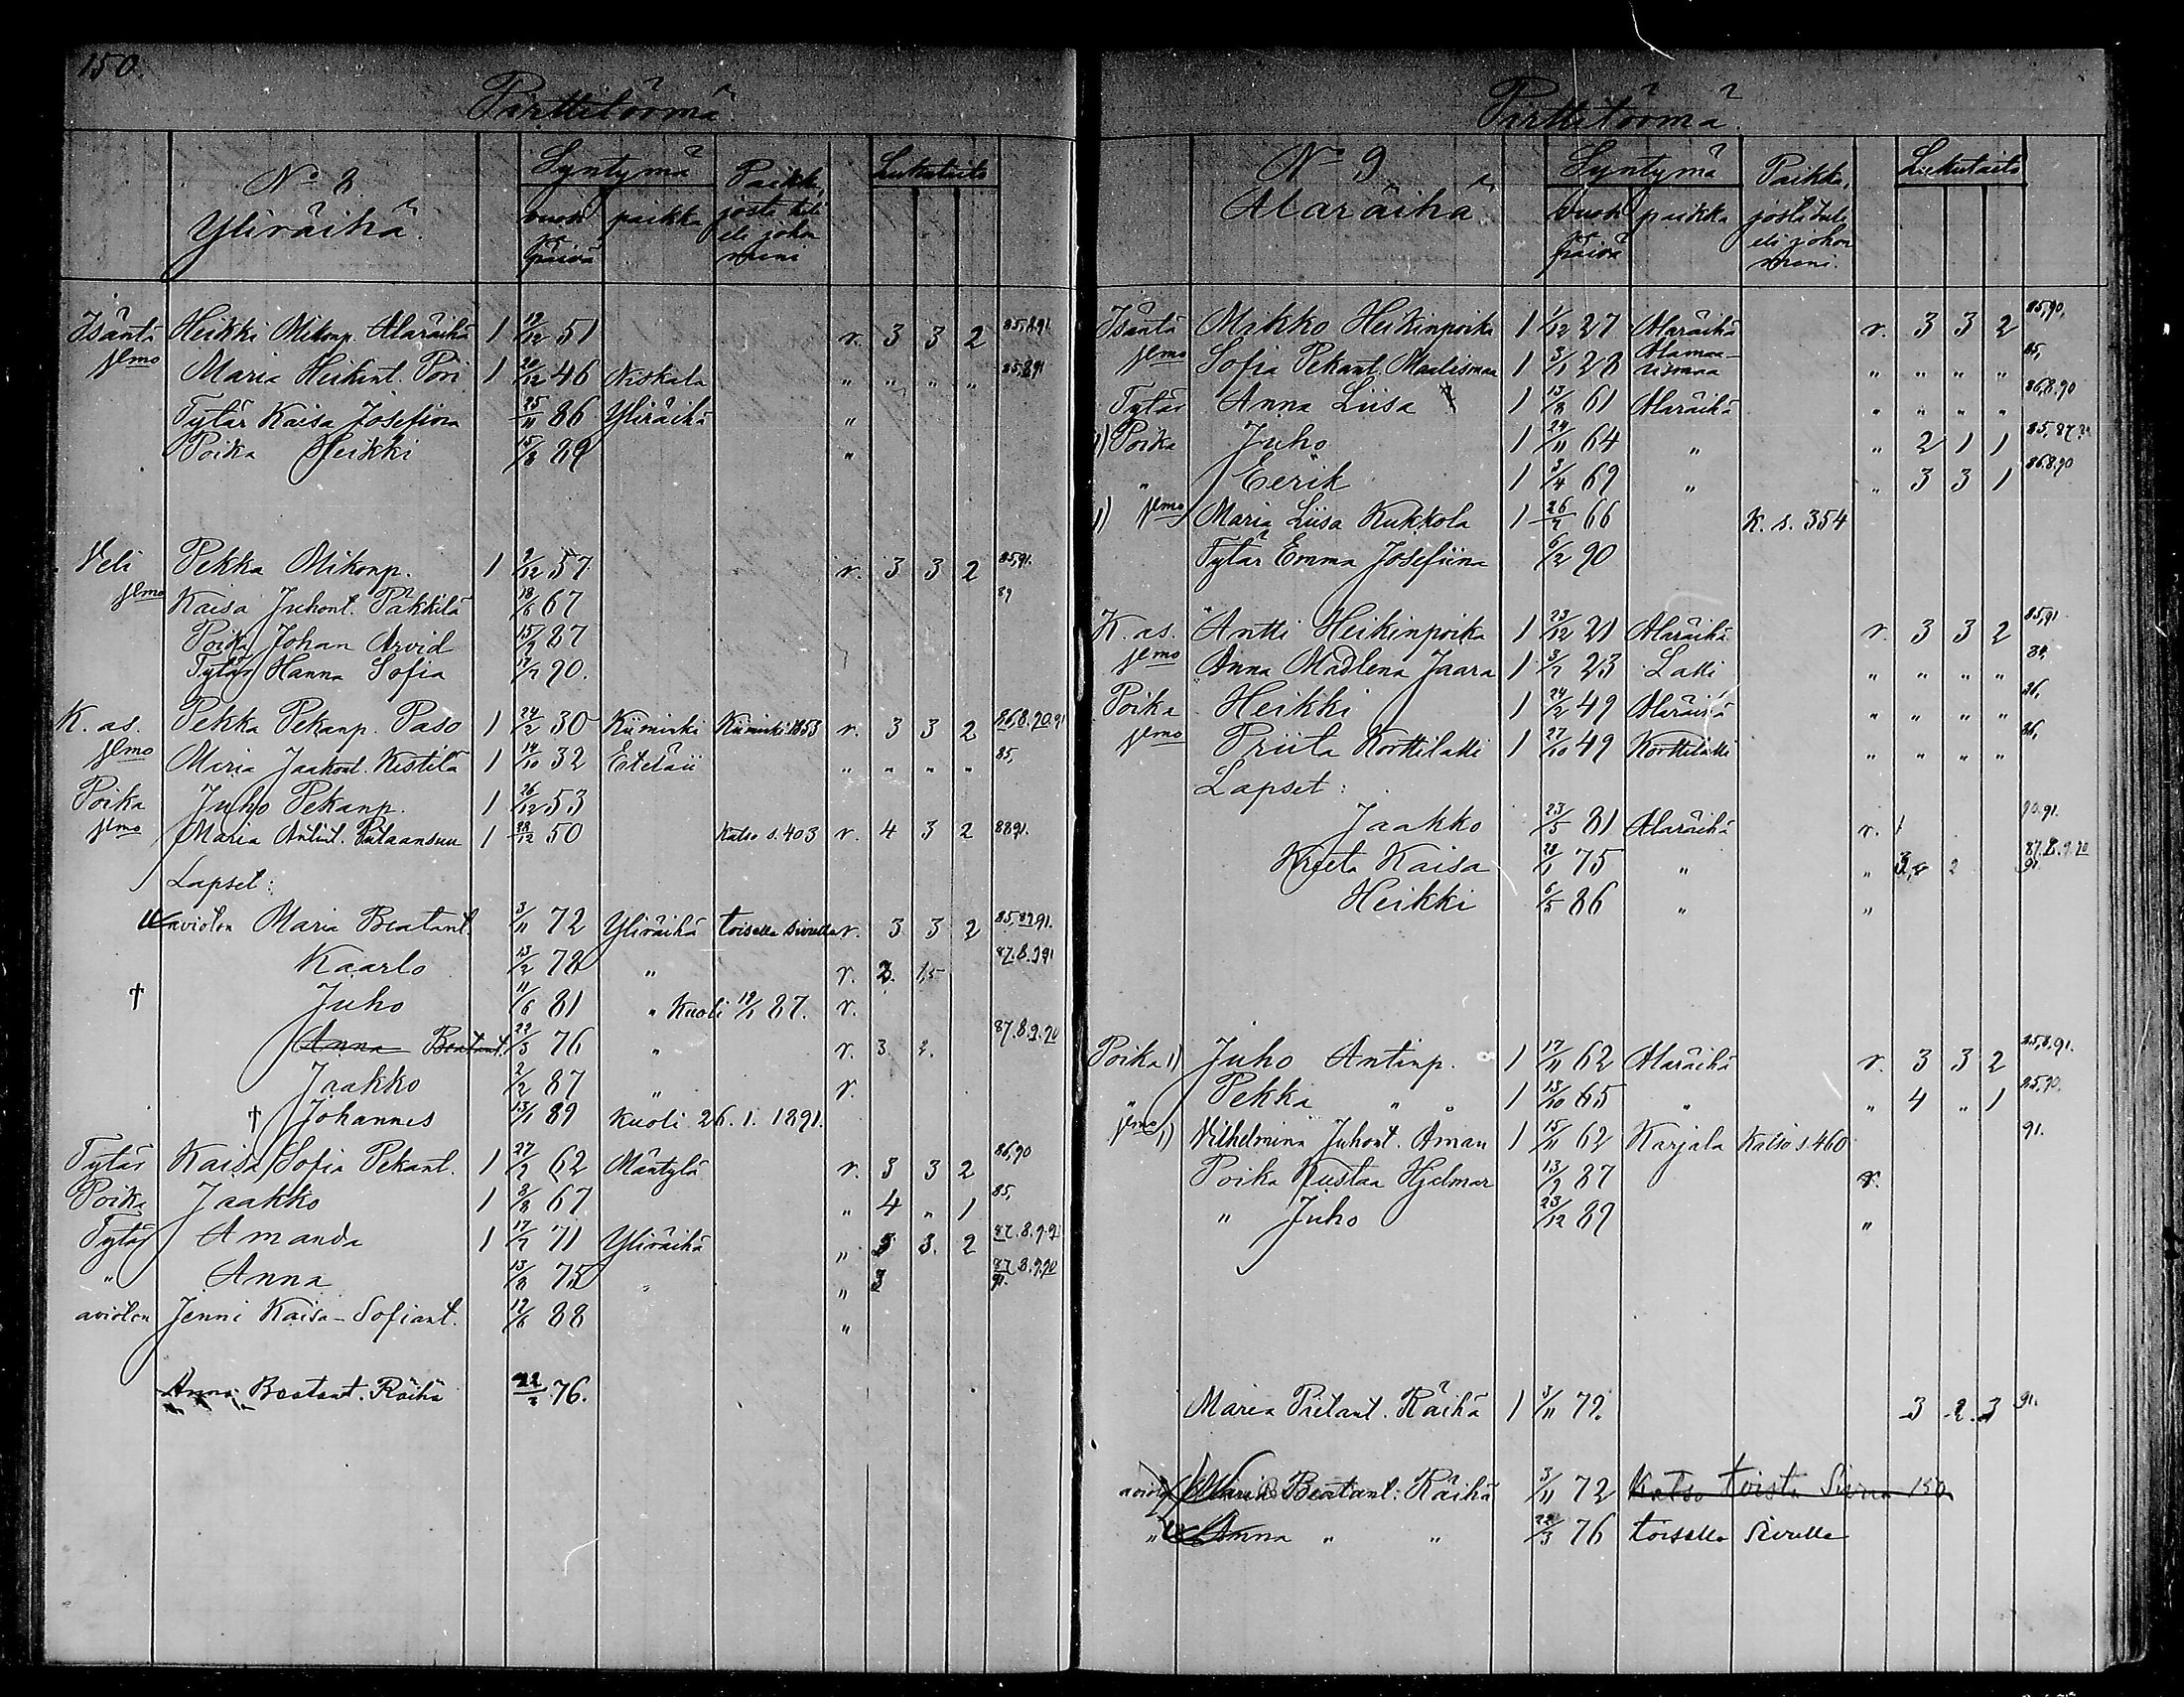 150.
Pirttitörmä
No 8
Yliräihä.
Syntymä
vuosi ja päivä
paikka
Paikka, josta tuli eli johon meni
Lukutaito
Isäntä Heikki Mikonp. Alaräihä 1 19/12 51 r. 3 3 2 85,8.91
jlmo Maria Heikint. Pori 1 20/12 46 Niskala " " " " 85,8.91
Tytär Kaisa Josefina 25/11 86 Yliräihä "
Poika Heikki 15/8 89 "
Veli Pekka Mikonp. 1 2/12 57 r. 3 3 2 85,91.
jlmo Kaisa Juhont. Pakkila 18/6 67 89
Poika Johan Arvid 15/9 87
Tytär Hanna Sofia 17/7 90.
K. as. Pekka Pekanp. Paso 1 24/2 30 Kiiminki Kiiminki 1853 r. 3 3 2 86.8.90.91
jlmo Maria Jaakont. Kestilä 1 14/10 32 Eteläii " " " " 85,
Poika Juho Pekanp. 1 26/12 53
jlmo Maria Antint. Putaansuu 1 28/12 50 Katso s. 403 r. 4 3 2 88 91.
Lapset:
avioton Maria Beatant. 3/11 72 Yliräihä toisella sivulla r. 3 3 2 85,89 91.
Kaarlo 13/2 78 " r. 2. 1,5 87.8.9 91
† Juho 11/6 81 " Kuoli 19/1 87. r.
Anna Beatant. 22/3 76 " r. 3. 2. 87.8.9.90
Jaakko 2/2 87 " r.
† Johannes 13/1 89 Kuoli 26. 1. 1891.
Tytär Kaisa Sofia Pekant. 1 27/2 62 Mäntylä r. 3 3 2 86,90
Poika Jaakko 1 3/8 67 " 4 " 1 85,
Tytär Amanda 1 17/7 71 Yliräihä " 3 3. 2 87.8.9.91
" Anna 13/8 75 " " 3 87.8.9.90 91.
avioton Jenni Kaisa-Sofiant. 12/6 88 "
Anna Beatant. Räihä 22/3 76.
Pirttitörmä.
No 9
Alaräihä
Syntymä
vuosi ja päivä
paikka
Paikka, josta tuli eli johon meni.
Lukutaito
Isäntä Mikko Heikinpoika 1 1/12 27 Alaräihä r. 3 3 2 85,90,
jlmo Sofia Pekant. Maalismaa 1 3/1 28 " " " " 85,
Tytär Anna Liisa 1 13/8 61 Alaräihä " " " " 86,8.90
1) Poika Juho 1 24/11 64 " " 2 1 1 85,87.
" Eerik 1 3/4 69 " " 3 3 1 86.8.90
1) jlmo Maria Liisa Kukkola 1 26/2 66 K. s. 354
Tytär Emma Josefiina 6/2 90
K. as. Antti Heikinpoika 1 23/12 21 Alaräihä r. 3 3 2 85,91
jlmo Anna Madlena Jaara 1 3/7 23 Lakki " " " "
Poika Heikki 1 24/2 49 Alaräihä " " " " 86,
jlmo Priita Korttilakki 1 27/10 49 Korttilakki " " " " 86,
Lapset:
Jaakko 23/5 81 Alaräihä r. 1 90.91.
Kreeta Kaisa 28/1 75 " " 3, 2 87.8.9.90 91
Heikki 6/5 86 " "
Poika 1) Juho Antinp. 1 17/11 62 Alaräihä r. 3 3 2 85,8,91.
" Pekka " 1 13/10 65 " " 4 " 1 85,90.
jlmo 1) Vilhelmina Juhont. Aman 1 15/11 62 Karjala Katso s. 460 91.
Poika Kustaa Hjalmar 13/9 87 r.
" Juho 23/12 89 "
Maria Pietant. Räihä 1 3/11 72. 3 2 3 91.
avioton Maria Beatant: Räihä 3/11 72 Katso toista Sivua 150
" Anna " " 22/3 76 toisella sivulla